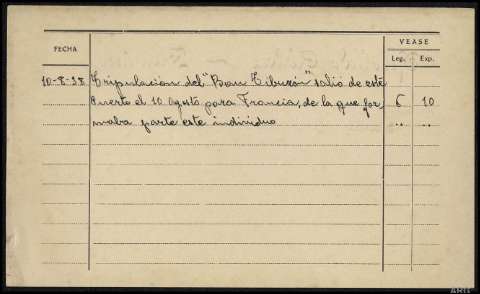 FECHA
VEASE
Leg. Exp.
10-8-38 Tripulación del "Bou Tiburón" salió de este
Puerto el 10 Agosto para Francia, de la que for, 6 10
maba parte este individuo " "